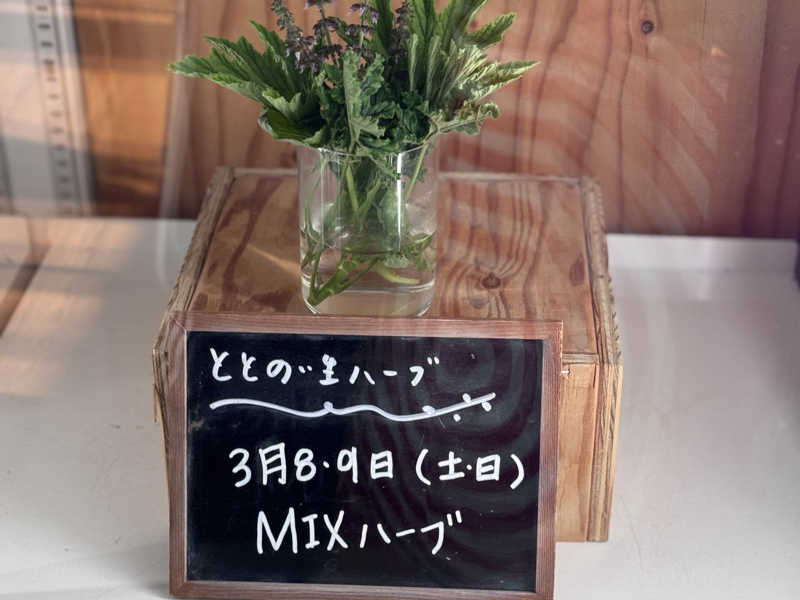 ととのゞ生ハーブ
3月8・9日(土・日)
MIXハーブ